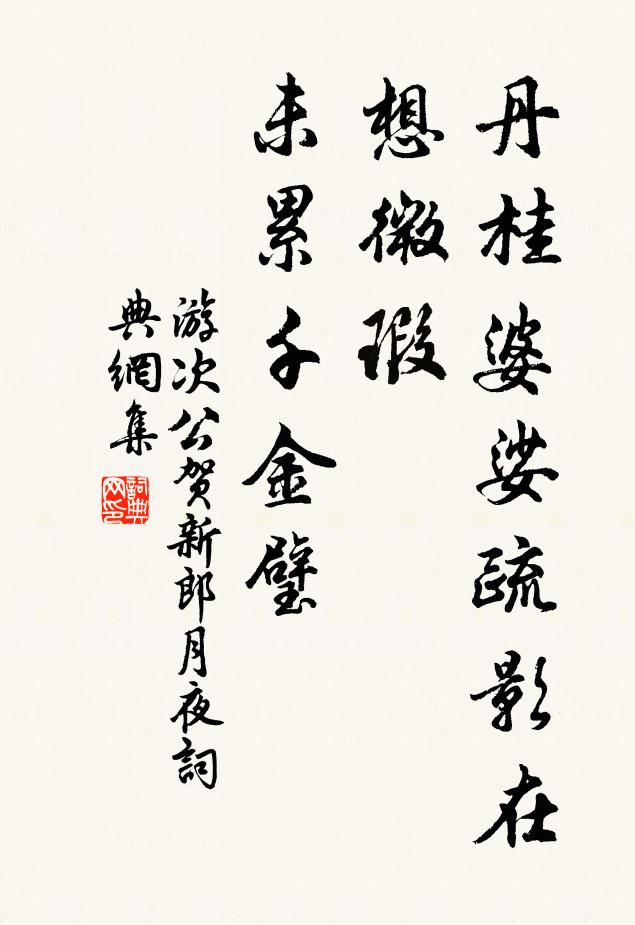 丹桂婆娑疏影在
想微瑕
未累千金璧
游次公贺新郎月夜詞
典網集
詞典
网印